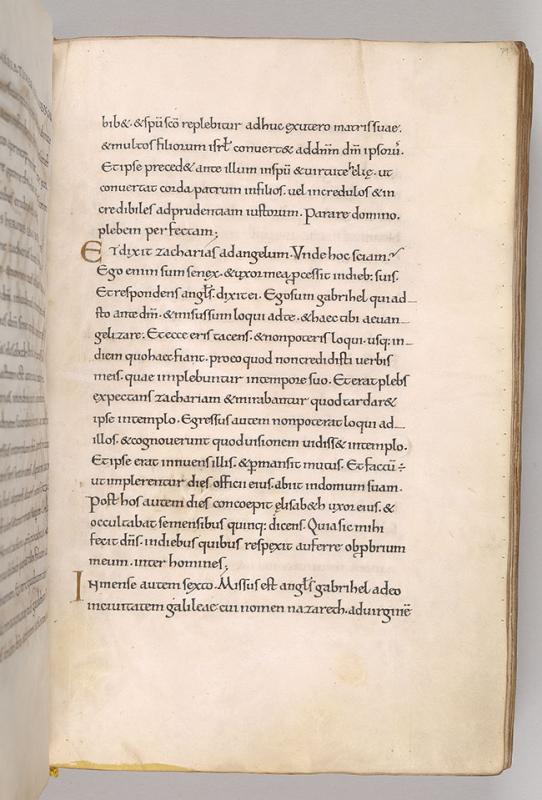 bib&. &spu̅ sc̅o replebitur adhuc exutero matris suae.
&multos filiorum isrl̅ convert& addn̅m dm̅ ipsoru̅.
Et ipse preced& ante illum inspu̅ &virtute helię. ut
convertat corda patrum infilios. vel incredulos &in
credibiles adprudentiam iustorum. Parare domino.
plebem perfectam;
Et dixit zacharias adangelum. Vnde hoc sciam?
Ego enim sum senex. &uxor mea pcessit indieb; suis.
Et respondens angl̅s. dixit ei. Ego sum gabrihel qui ad
sto ante dm̅. &missus sum loqui adte. &haec tibi aevan
gelizare; Et ecce eris tacens. &non poteris loqui. usq; in
diem quo haec fiant. pro eo quod non credidisti verbis
meis. quae implebuntur intempore suo. Et erat plebs
expectans zachariam &mirabantur quod tardar&
ipse intemplo. Egressus autem non poterat loqui ad
illos. &cognoverunt quod visionem vidiss& intemplo.
Et ipse erat innuens illis. &pmansit mutus. Et factu̅ ÷
ut implerentur dies officii eius. abiit indomum suam.
Post hos autem dies concoepit elisab&h uxor eius. &
occultabat se mensibus quinq; dicens. Quia sic mihi
fecit dn̅s. indiebus quibus respexit auferre obpbrium
meum. inter homines;
In mense autem sexto. Missus est angl̅s gabrihel adeo
incivitatem galileae cui nomen nazareth. ad virgine̅